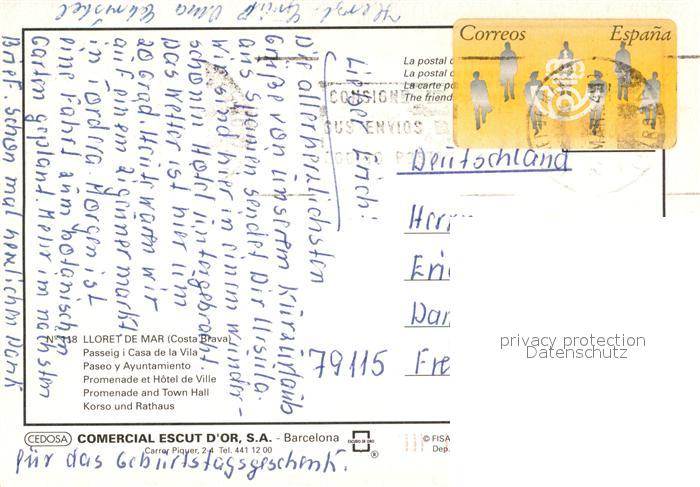 Correos España
La postal d
La postal c
La carte po
The friend
CONSIGNE
SUS ENVIOS
Deutschland
Herrn
Eri
Dan
79115 Fre
privacy protection
Datenschutz
Lieber Erich!
Die allerherzlichsten
Grüße von unserem Kurzurlaub
aus Spanien sendet Dir Ursula.
Wir sind hier in einem wunder-
schönen Hotel untergebracht.
Das Wetter ist hier um
20 Grad. Heute waren wir
auf einem Zigeunermarkt
in Tordera. Morgen ist
eine Fahrt zum botanischen
Garten geplant. Mehr im nächsten
Brief. Schon mal herzlichen Dank
für das Geburtstagsgeschenk.
Herzl. Gruß Oma
Nº 118 LLORET DE MAR (Costa Brava)
Passeig i Casa de la Vila
Paseo y Ayuntamiento
Promenade et Hôtel de Ville
Promenade and Town Hall
Korso und Rathaus
CEDOSA COMERCIAL ESCUT D'OR, S.A. - Barcelona
Carrer Piquer, 2-4 Tel. 441 12 00
ESCUDO DE ORO
®
© FISA
Dep.